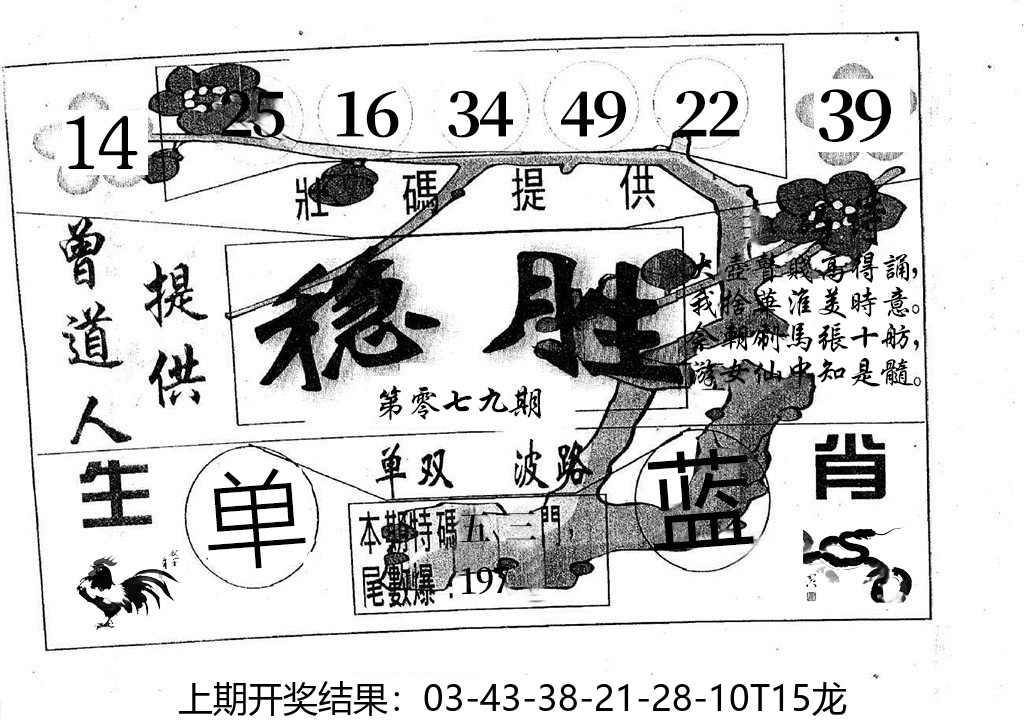 14 25 16 34 49 22 39
壯碼提供
曾道人
提供
特
大壺聲賤高得誦,
我惜藥淮美時意。
全朝刷馬張十舫,
游女仙中知是髓。
稳胜
第零七九期
单双 波路
生
单
蓝
肖
本期特碼五、三門,
尾數爆:197
上期开奖结果：03-43-38-21-28-10T15龙